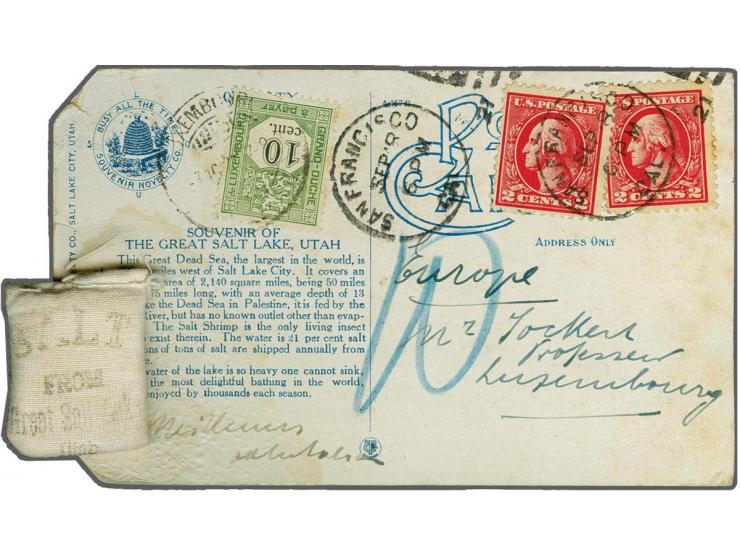 BUSY ALL THE TIME
SOUVENIR NOVELTY CO.
SALT LAKE CITY, UTAH.
GRAND-DUCHÉ
DE LUXEMBOURG
à payer
10
cent.
SAN FRANCISCO
SEP 8
6 PM
CAL.
U.S. POSTAGE
2 CENTS 2
U.S. POSTAGE
2 CENTS 2
SOUVENIR OF
THE GREAT SALT LAKE, UTAH
This Great Dead Sea, the largest in the world, is
miles west of Salt Lake City. It covers an
area of 2,140 square miles, being 50 miles
75 miles long, with an average depth of 13
ke the Dead Sea in Palestine, it is fed by the
River, but has no known outlet other than evap-
The Salt Shrimp is the only living insect
exist therein. The water is 21 per cent salt
ons of tons of salt are shipped annually from
water of the lake is so heavy one cannot sink,
the most delightful bathing in the world,
enjoyed by thousands each season.
ADDRESS ONLY
Europe
Mr Tockert
Professeur
Luxembourg
10
FROM